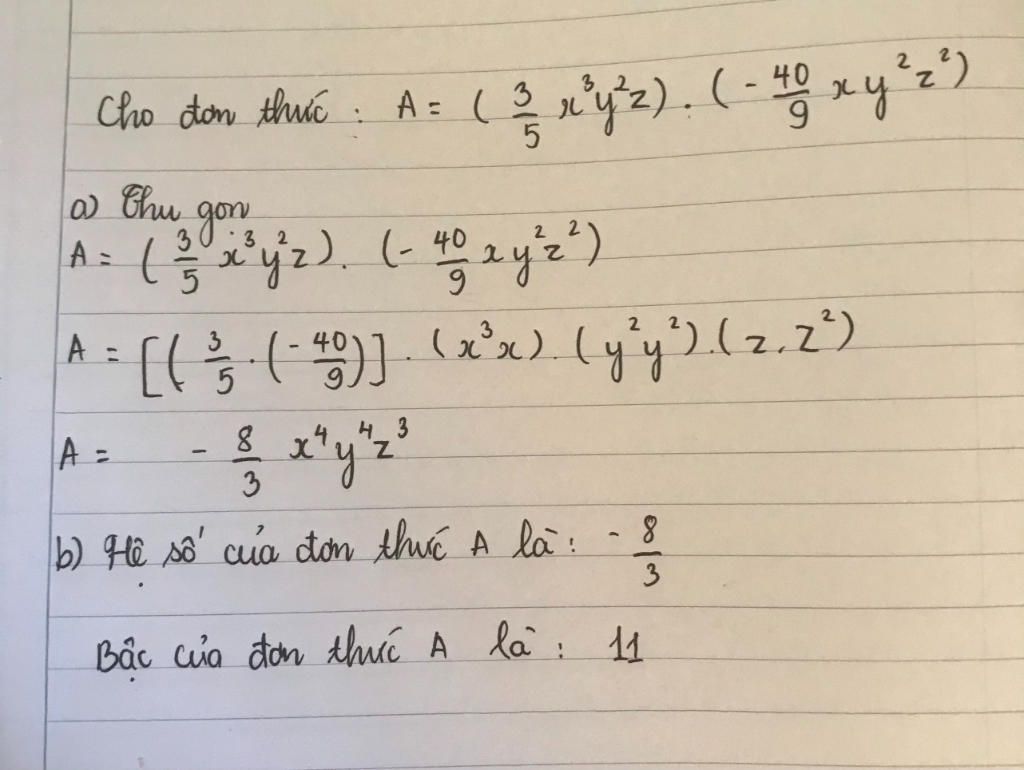 Cho đơn thức : A = ( 3/5 x³y²z ) . ( - 40/9 x y² z² )
a) Thu gọn
A = ( 3/5 x³ y² z ) . ( - 40/9 x y² z² )
A = [ ( 3/5 . ( - 40/9 ) ] . ( x³ x ) . ( y² y² ) . ( z . z² )
A = - 8/3 x⁴ y⁴ z³
b) Hệ số của đơn thức A là : - 8/3
Bậc của đơn thức A là : 11